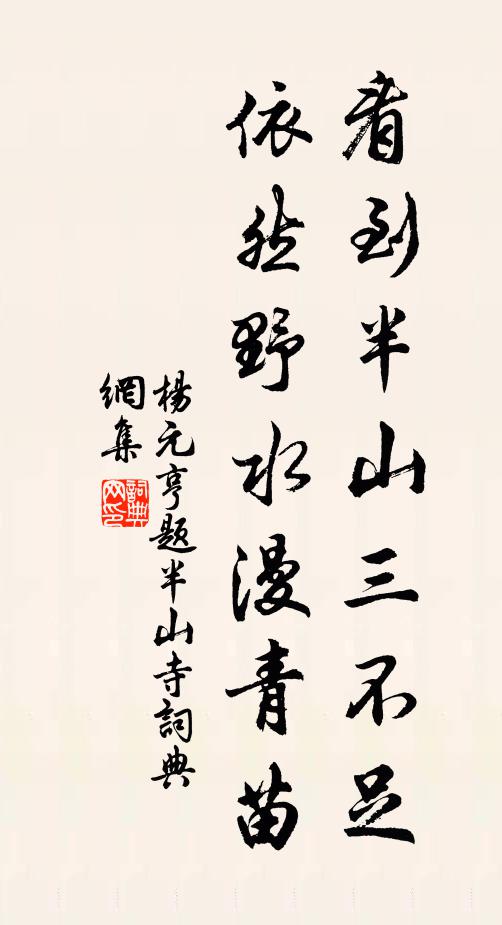 看到半山三不足
依然野水漫青苗
楊元亨題半山寺詞典
網集
詞典
网印